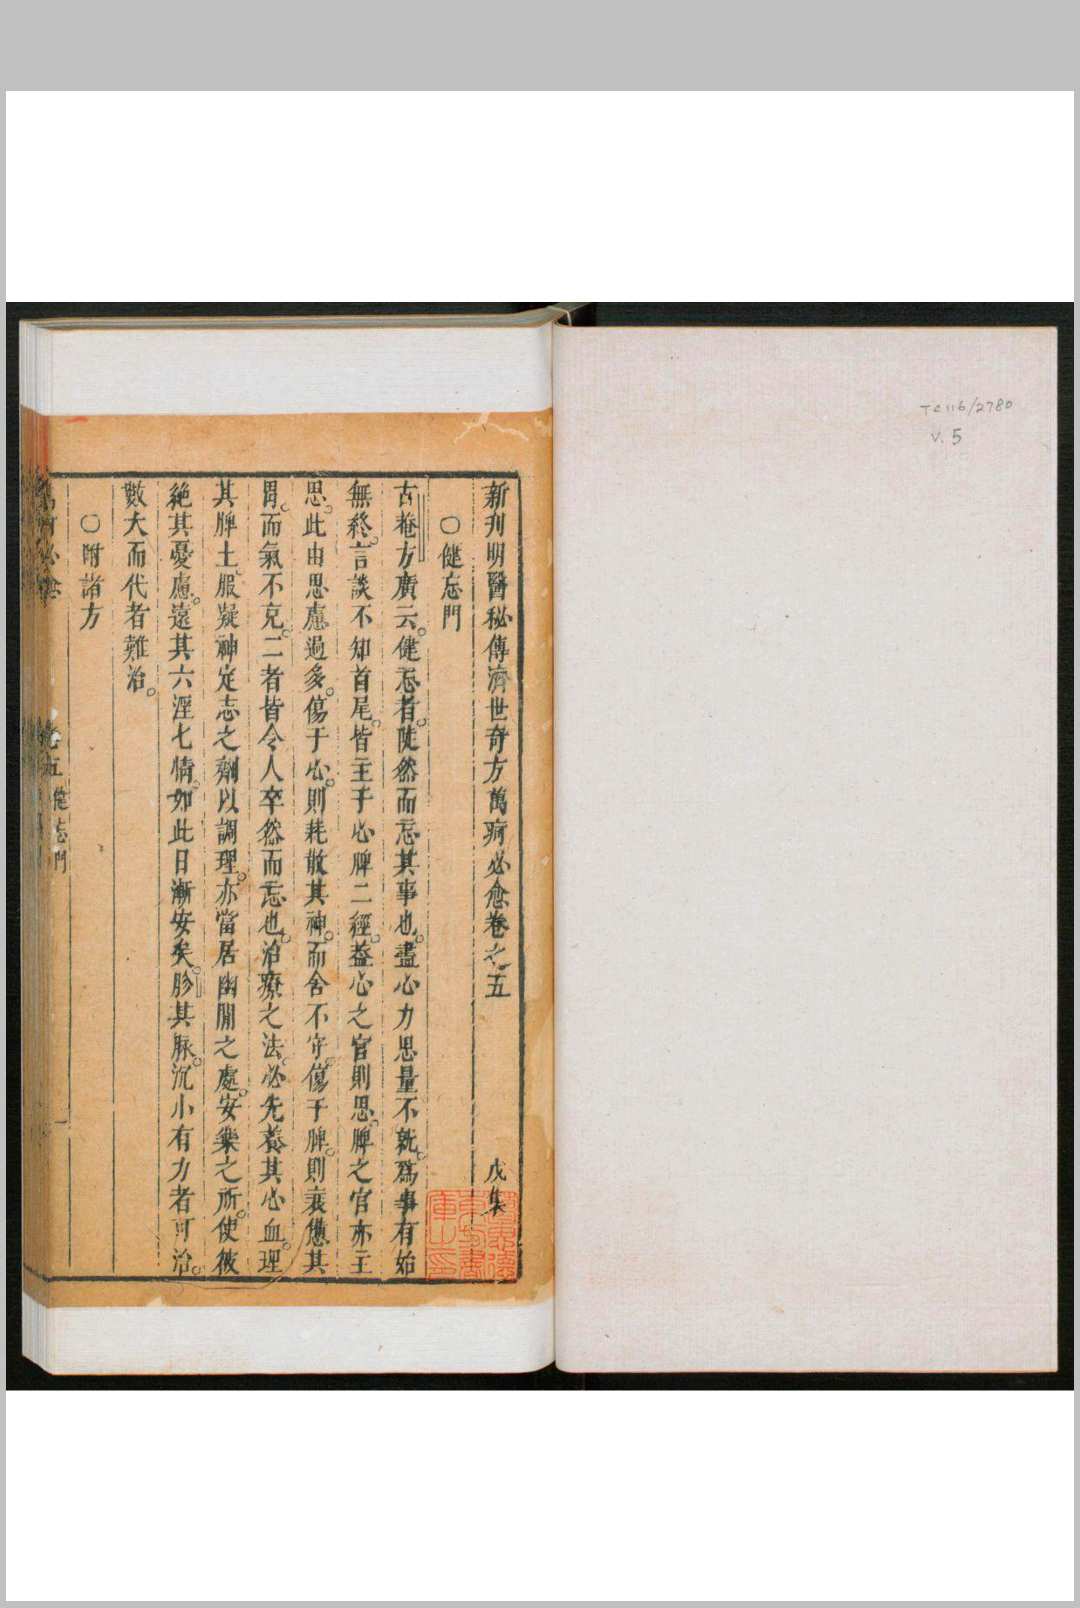 TC116/2780
V.5
新刋明醫秘傳濟世奇方萬病必愈卷之五 戊集
○健忘門
古菴方廣云。健忘者。陡然而忘其事也。盡心力思量不就。爲事有始
無終。言談不知首尾。皆主于心脾二經。葢心之官則思。脾之官亦主
思。此由思慮過多。傷于心。則耗散其神。而舍不守。傷于脾。則衰憊其
胃。而氣不克。二者皆令人卒然而忘也。治療之法。必先養其心血。理
其脾土。服凝神定志之劑以調理。亦當居幽閒之處。安樂之所。使彼
絶其憂慮。遠其六滛七情。如此日漸安矣。胗其脉。沉小有力者可治。
數大而代者難治。
○附諸方
卷五 健忘門 一